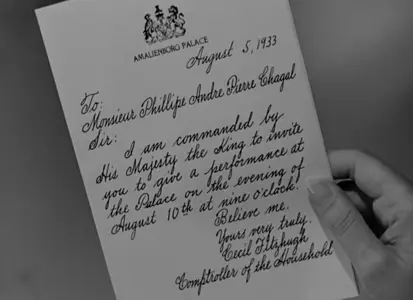 AMALIENBORG PALACE
August 5, 1933
To:
Monsieur Phillipe Andre Pierre Chagal
Sir:
I am commanded by
His Majesty the King to invite
you to give a performance at
the Palace on the evening of
August 10th at nine o'clock.
Believe me,
Yours very truly,
Cecil Fitzhugh
Comptroller of the Household